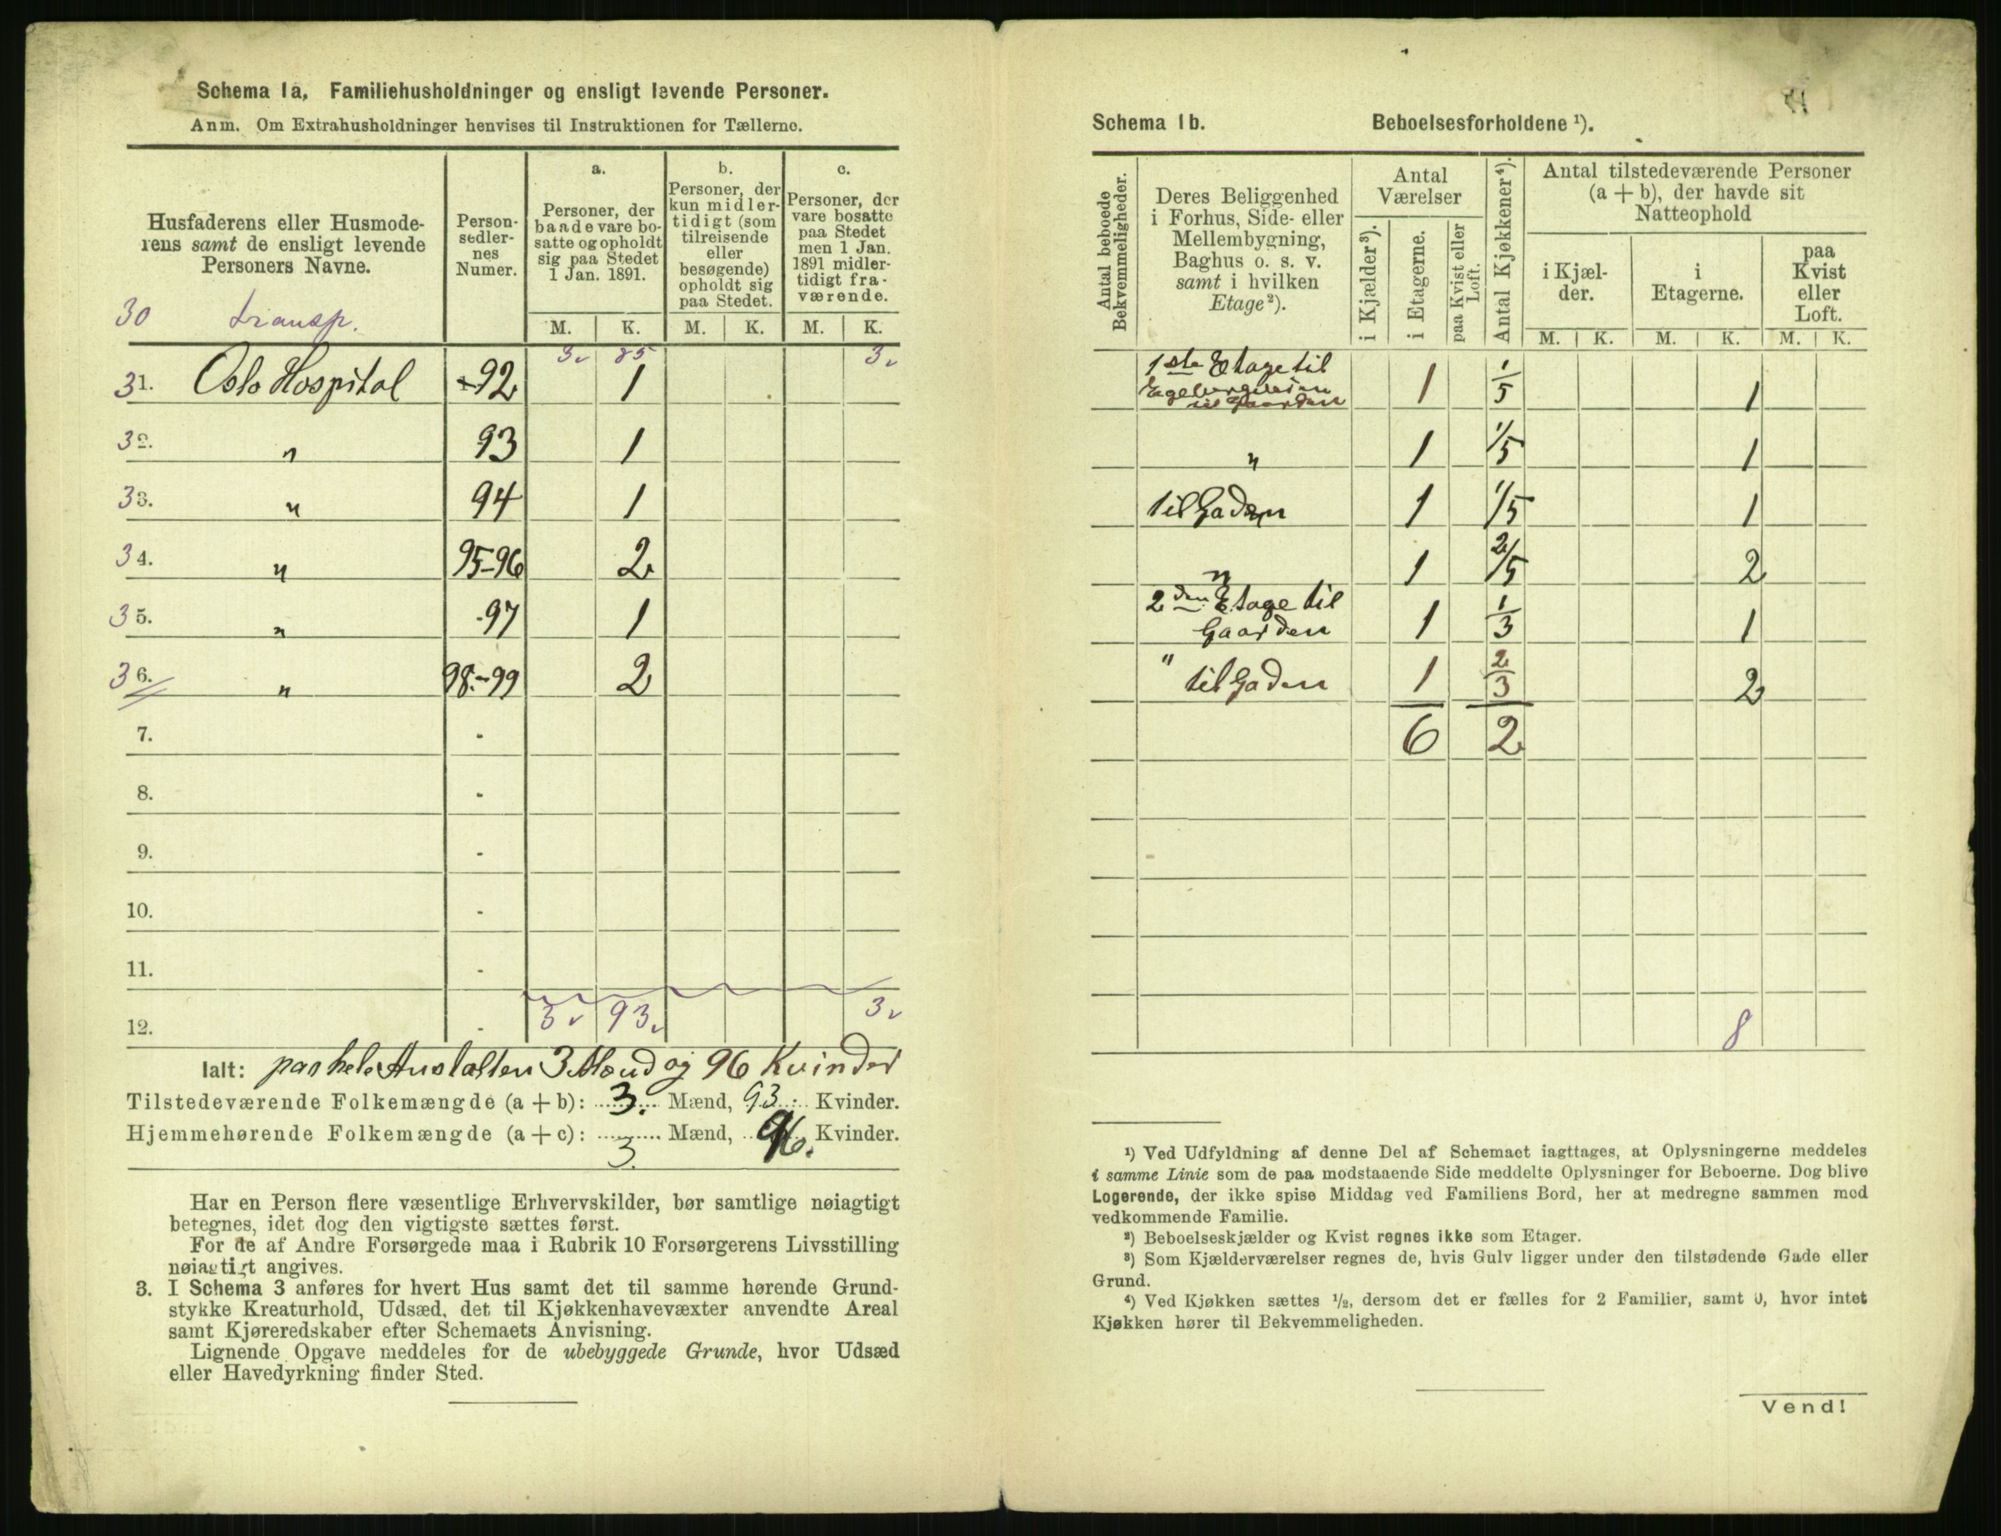 Schema 1a. Familiehusholdninger og ensligt levende Personer.
Anm. Om Extrahusholdninger henvises til Instruktionen for Tællerne.
Husfaderens eller Husmode-
rens samt de ensligt levende
Personers Navne.
Person-
sedler-
nes
Numer.
a.
Personer, der
baade vare bo-
satte og opholdt
sig paa Stedet
1 Jan. 1891.
b.
Personer, der
kun midler-
tidigt (som
tilreisende
eller
besøgende)
opholdt sig
paa Stedet.
c.
Personer, der
vare bosatte
paa Stedet
men 1 Jan.
1891 midler-
tidigt fra-
værende.
M. K. M. K. M. K.
30 transp. 3 85 3
31. Oslo Hospital 92 1
32. " 93 1
33. " 94 1
34. " 95-96 2
35. " 97 1
36. " 98-99 2
7.
8.
9.
10.
11.
12. 3 93 3
Ialt: paa hele Anstalten 3 Mænd og 96 Kvinder
Tilstedeværende Folkemængde (a + b): 3. Mænd, 93 Kvinder.
Hjemmehørende Folkemængde (a + c): 3. Mænd, 96. Kvinder.
Har en Person flere væsentlige Erhvervskilder, bør samtlige nøiagtigt
betegnes, idet dog den vigtigste sættes først.
For de af Andre Forsørgede maa i Rubrik 10 Forsørgerens Livsstilling
nøiagtigt angives.
3. I Schema 3 anføres for hvert Hus samt det til samme hørende Grund-
stykke Kreaturhold, Udsæd, det til Kjøkkenhavevæxter anvendte Areal
samt Kjøreredskaber efter Schemaets Anvisning.
Lignende Opgave meddeles for de ubebyggede Grunde, hvor Udsæd
eller Havedyrkning finder Sted.
Schema 1b. Beboelsesforholdene ¹).
Antal beboede
Bekvemmeligheder.
Deres Beliggenhed
i Forhus, Side- eller
Mellembygning,
Baghus o. s. v.
samt i hvilken
Etage ²).
Antal
Værelser
i Kjælder ³).
i Etagerne.
paa Kvist eller
Loft.
Antal Kjøkkener ⁴).
Antal tilstedeværende Personer
(a + b), der havde sit
Natteophold
i Kjæl-
der.
i
Etagerne.
paa
Kvist
eller
Loft.
M. K. M. K. M. K.
1ste Etage til
Egebergveien
til Gaarden 1 1/5 1
" 1 1/5 1
til Gaden 1 1/5 1
" 1 2/5 2
2den Etage til
Gaarden 1 1/3 1
" til Gaden 1 2/3 2
6 2
8
¹) Ved Udfyldning af denne Del af Schemaet iagttages, at Oplysningerne meddeles
i samme Linie som de paa modstaaende Side meddelte Oplysninger for Beboerne. Dog blive
Logerende, der ikke spise Middag ved Familiens Bord, her at medregne sammen med
vedkommende Familie.
²) Beboelseskjælder og Kvist regnes ikke som Etager.
³) Som Kjælderværelser regnes de, hvis Gulv ligger under den tilstødende Gade eller
Grund.
⁴) Ved Kjøkken sættes ½, dersom det er fælles for 2 Familier, samt 0, hvor intet
Kjøkken hører til Bekvemmeligheden.
Vend!